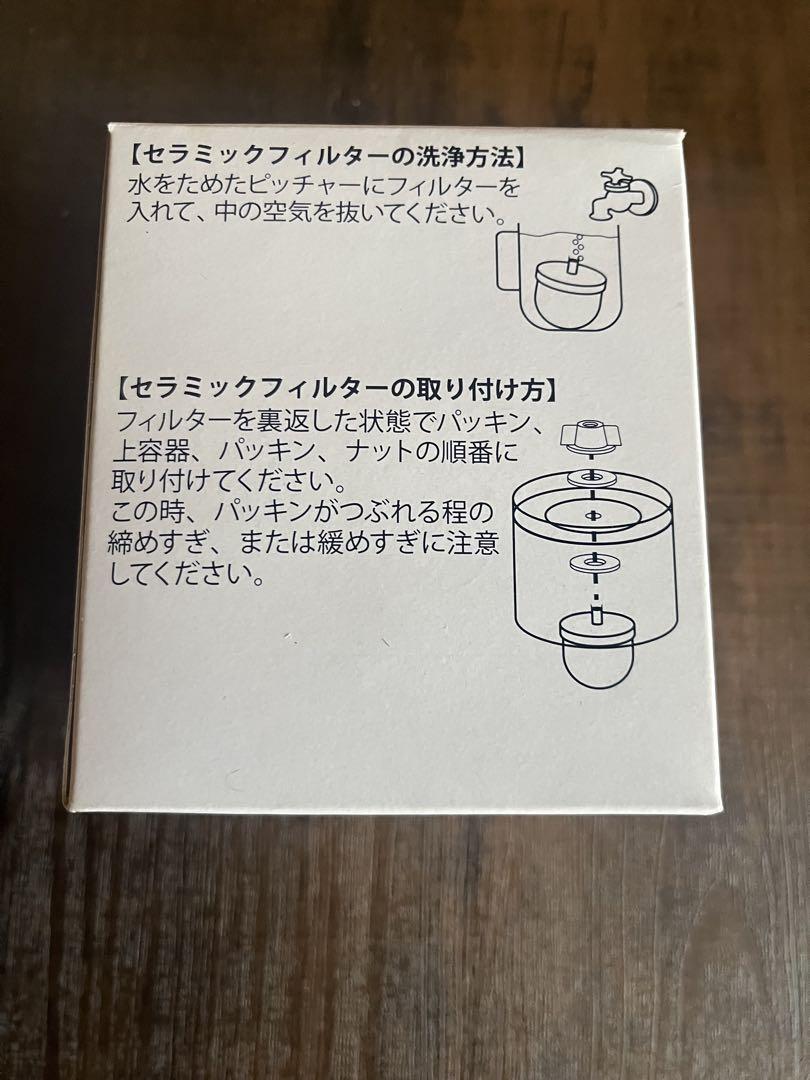 【セラミックフィルターの洗浄方法】
水をためたピッチャーにフィルターを
入れて、中の空気を抜いてください。
【セラミックフィルターの取り付け方】
フィルターを裏返した状態でパッキン、
上容器、パッキン、ナットの順番に
取り付けてください。
この時、パッキンがつぶれる程の
締めすぎ、または緩めすぎに注意
してください。